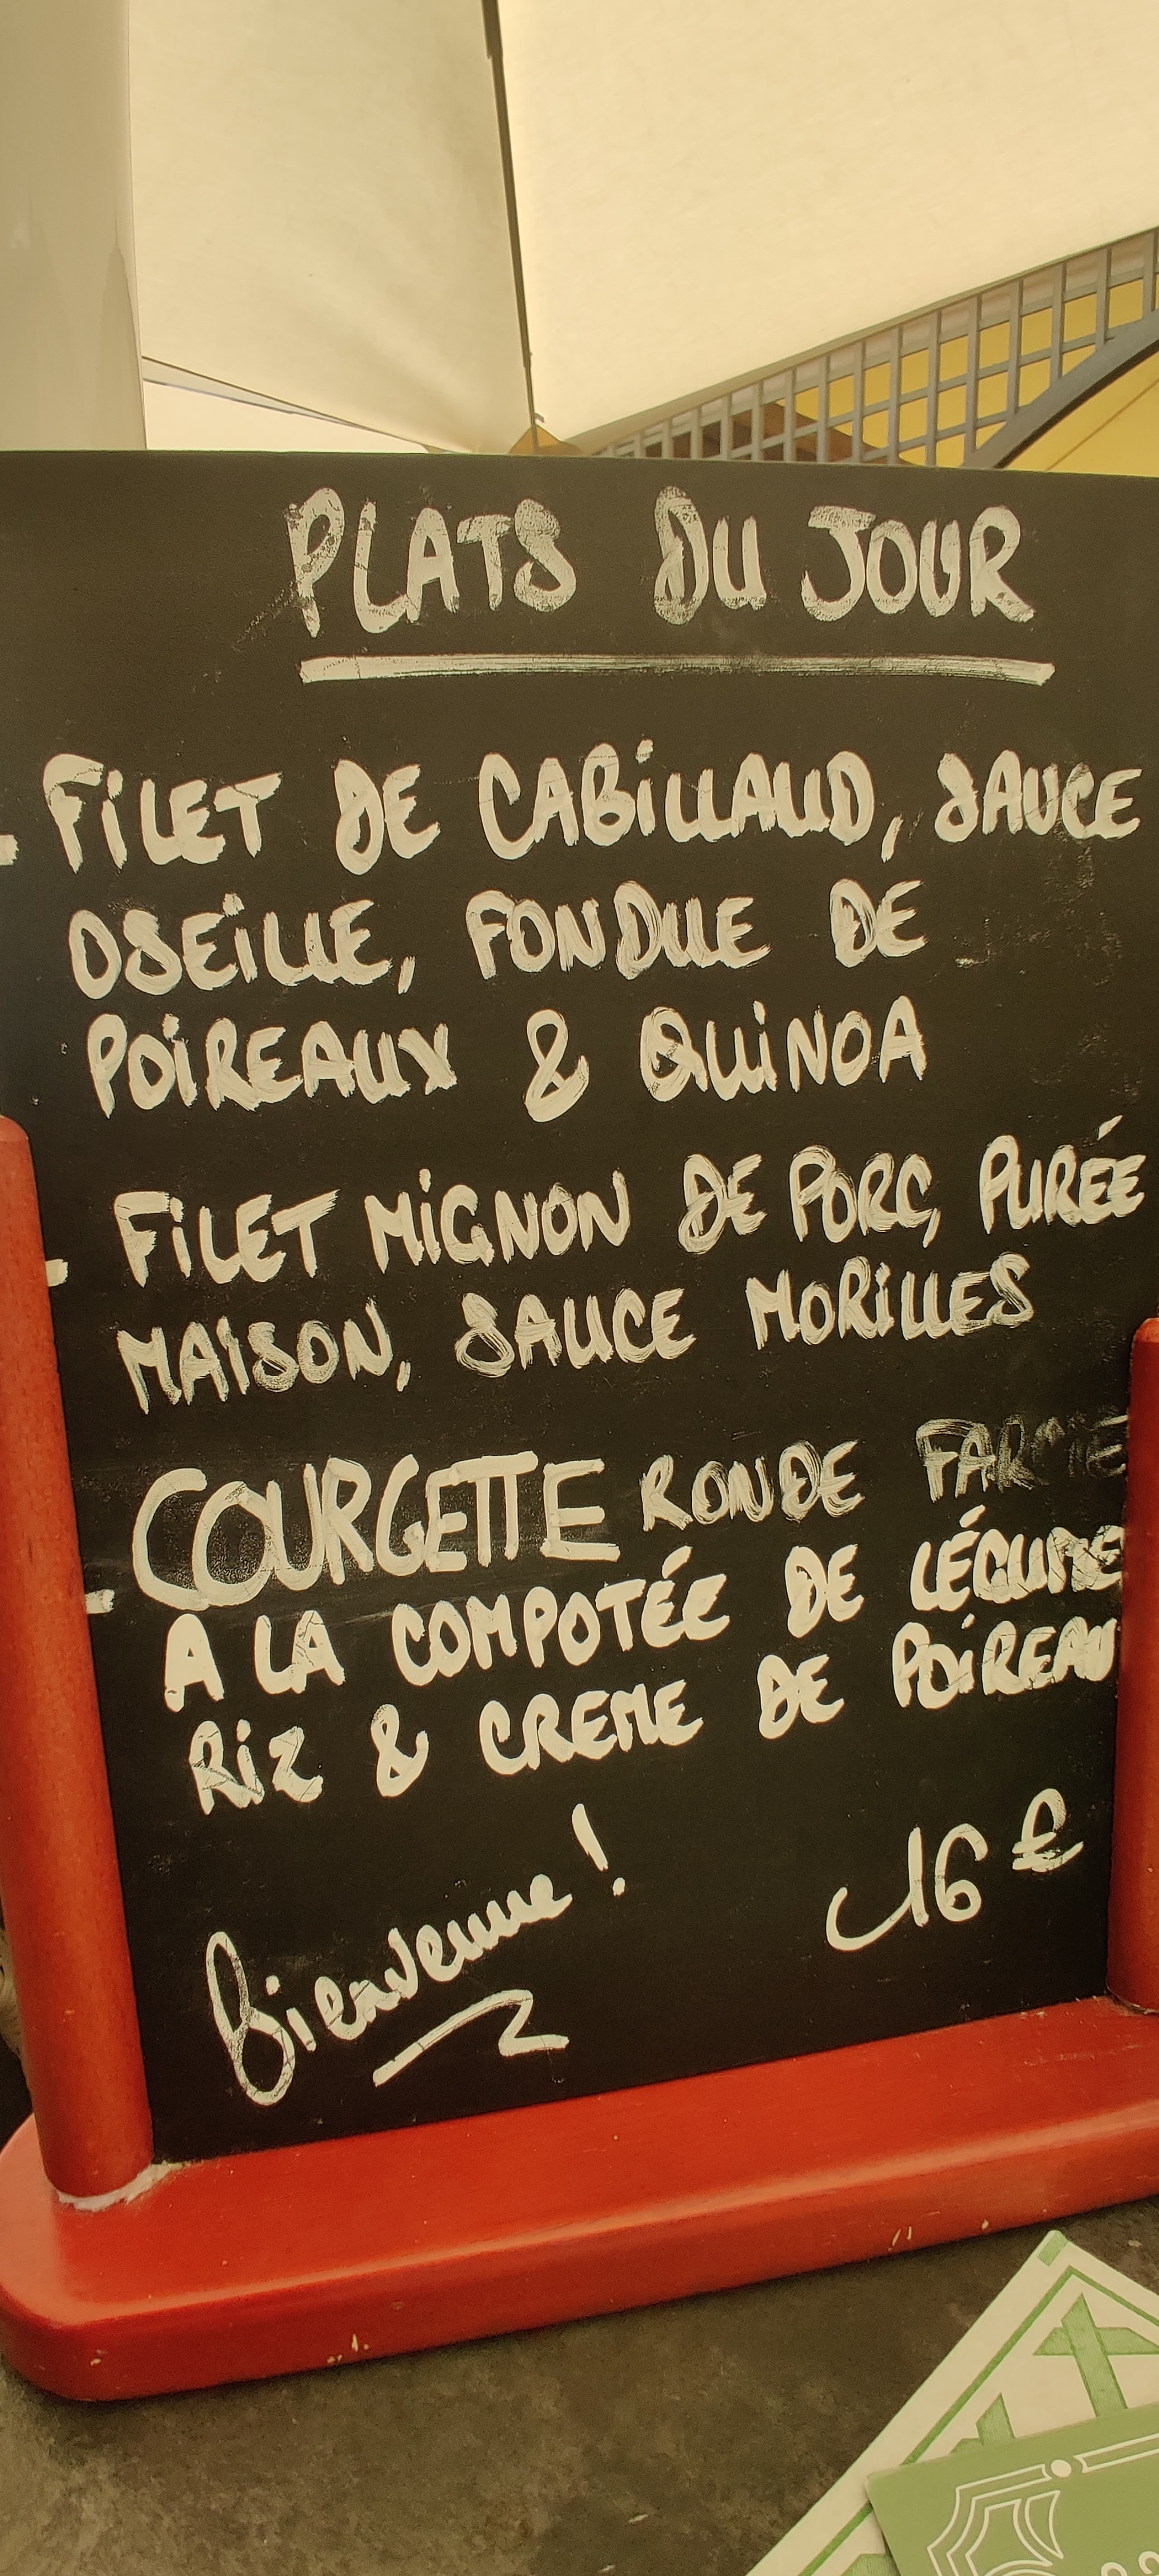 PLATS DU JOUR
- FILET DE CABILLAUD, SAUCE
OSEILLE, FONDUE DE
POIREAUX & QUINOA
- FILET MIGNON DE PORC, PURÉE
MAISON, SAUCE MORILLES
- COURGETTE RONDE FARCIE
A LA COMPOTÉE DE LÉGUME
RIZ & CREME DE POIREAU
16 €
Bienvenue !